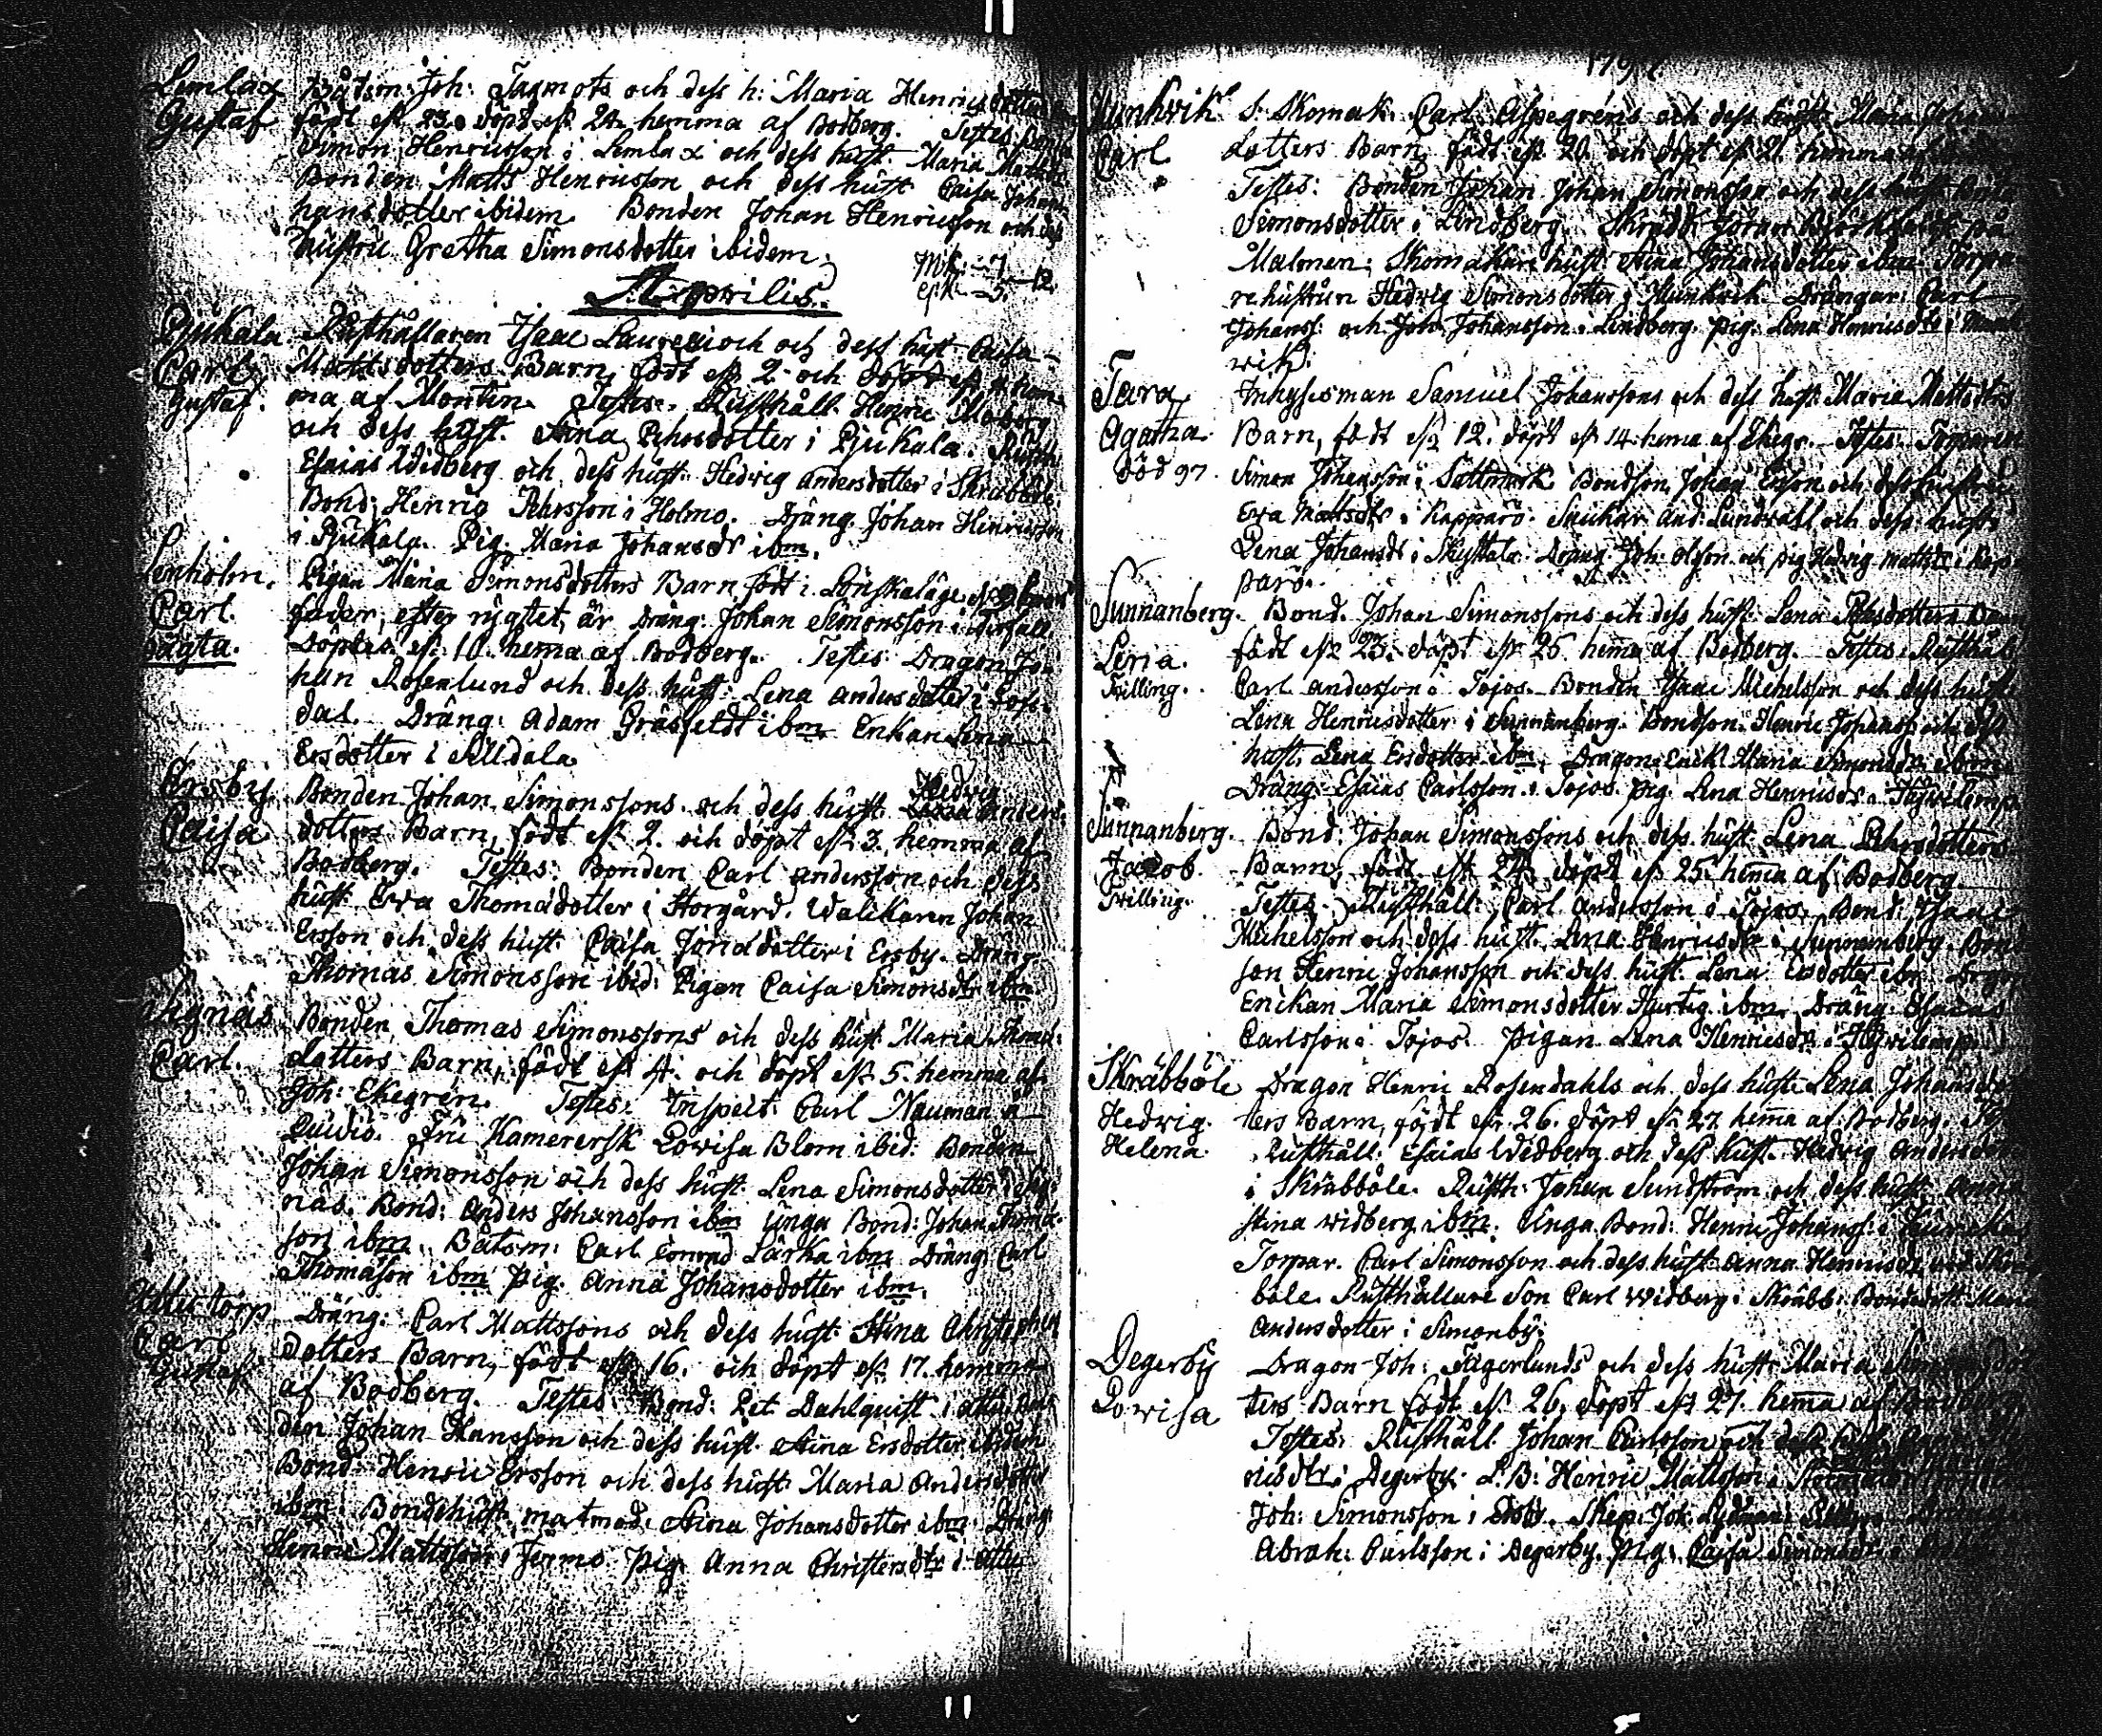 Lemlax Båtsm: Joh: Tagmots och dess h: Maria Henricsdotters
Gustaf födt d. 23. döpt d. 24. hemma af Bodberg. Testes Bonden
Simon Henricsson i Lemlax och dess hust. Maria Matts
Bonden Matts Henricsson och dess hust Caisa Johans
hansdotter ibidem. Bonden Johan Henricsson och dess
hustru Gretha Simonsdotter ibidem.
Mk. - 7
Qk. - 5. 12.
Aprilis.
Pjukala Rusthållaren Isaac och dess hust Caisa
Carl Mattsdotters Barn, födt d. 2. och döpt d. hem
Gustaf. ma af Montin. Testes. Rusthåll. Henric Moberg
och dess hust. Stina Pehrsdotter i Pjukala. Rusth.
Esaias Widberg och dess hust: Hedvig Andersdotter i Skräbböle
Bond: Henric Pehrsson i Holmo. Dräng. Johan Henricsson
i Pjukala. Pig. Maria Johansdr ibm.
Lemholm. Pigan Maria Simonsdotters Barn, födt i Lönskaläge d. 9
Carl. fader, efter rygtet, är Dräng: Johan Simonsson i
oägta. Döptes d. 10. hemma af Bodberg. Testes. Dragon Jo-
han Rosenlund och dess hust: Lena Andersdotter i
dal. Dräng: Adam Gräsfeldt ibm Enkan Lena
Ersdotter i Silldala
Ersby. Bonden Johan Simonssons och dess hust. Hedvig Anders-
Caisa dotters Barn, födt d. 2. och döpt d. 3. hemma af
Bodberg. Testes: Bonden Carl Andersson och dess
hust Eva Thomædotter i Storgård. Johan
Ersson och dess hust. Caisa dotter i Ersby. Dräng.
Thomas Simonsson ibid. Pigan Caisa Simonsdr ibm.
Signäs Bonden Thomas Simonssons och dess hust Maria Thomæ-
Carl. dotters Barn, födt d. 4. och döpt d. 5. hemma af
Joh: Ekegrén. Testes: Inspect: Carl Nauman å
Qvidio. Fru Kamerersk Lovisa Blom ibid: Bonden
Johan Simonsson och dess hust. Lena Simonsdotter i Sig-
näs. Bond: Anders Johansson ibm Unga Bond: Johan Thomæ-
son ibm. Båtsm: Carl Conrad Lärka ibm Dräng Carl
Thomæson ibm Pig. Anna Johansdotter ibm.
Attu torp Dräng: Carl Mattssons och dess hust: Stina Christophers
Carl dotters Barn, födt d. 16. och döpt d. 17. hemma
Gustaf af Bodberg. Testes. Bond: Pet Dahlquist i Attu, Bon
den Johan Hansson och dess hust. Stina Ersdotter ibidem
Bond: Henric Ersson och dess hust: Maria Andersdotter
ibm. Bondehust. Stina Johansdotter ibm. Dräng
Henric Mattsson i Jermo. Pig Anna Christersdtr i Attu
Munkvik S. Skomak. Carl Aspegréns och dess hustr Maria Johans
Carl dotters Barn, födt d. 20. och döpt d. 21. hemma
Testes: Bonden Johan Johan Simonsson och dess hust
Simonsdotter i Lindberg. Skrädd. Jöran på
Malmen; Skomakare hust. Stina Johansdotter ibm. Torpa
re hustrun Hedvig Simonsdotter i Munkvik. Drängar Carl
Johanss: och Joh. Johansson i Lindberg. Pig. Lena Henricsdtr i Munk
wik.
Tara Inhysesman Samuel Johanssons och dess hust: Maria Mattsdtrs
Agatha. Barn, födt d. 12. döpt d. 14 hema af Ekegr. Testes. Torparen
död 97. Simon Johansson i Sattmark Bondson, Johan Ersson och dess hustru
Eva Mattsdtr i Kapparö. Snickar And: Lundvall och dess hustr
Lena Johansdr i Skyttala Dräng Joh: Olsson och pig Hedvig Mattsdr i Kap-
parö.
Sunnanberg. Bond. Johan Simonssons och dess hust: Lena Pehrsdotters Barn
Leria. födt d. 23. döpt d. 25. hemma af Bodberg. Testes. Rusthål
Trilling. Carl Andersson i Tojos. Bonden Isaac Michelsson och dess hust:
Lena Henricsdotter i Sunnanberg. Bondson. Henric Johanss: och dess
hust. Lena Ersdotter ibm, Dragon Enck: Maria Simonsdr ibm
Dräng: Esaias Carlsson i Tojos. Pig. Lena Henricsdr i
Sunnanberg. Bond: Johan Simonssons och dess hust. Lena Pehrsdotters
Jacob. Barn, födt d. 24. döpt d. 25. hemma af Bodberg
Trilling. Testes. Rusthåll: Carl Andersson i Tojos. Bond: Isaac
Michelsson och dess hust. Lena Henricsdr i Sunnanberg. Bond
son Henric Johansson och dess hust. Lena Ersdotter ibm Drag.
Enckan Maria Simonsdotter Hurtig ibm. Dräng: Esaias
Carlsson i Tojos. Pigan Lena Henricsdr i
Skräbböle Dragon Henric Rosendahls och dess hust: Lena Johansdot
Hedvig. ters Barn, födt d. 26. döpt d. 27. hemma af Bodberg.
Helena. Rusthåll: Esaias Widberg och dess hust. Hedvig Andersdotter
i Skräbböle. Rusth. Johan Sundström och dess hust. Anna
Stina Widberg ibm. Unga Bond: Henric Johanss: i
Torpar. Carl Simonsson och dess hust: Anna Henricsdr vid Skräb
böle. Rusthållare Son Carl Widberg i Skräbb: Bondedott:
Andersdotter i Simonby.
Degerby Dragon Joh: Fagerlunds och dess hustr Maria Simonsdot
Lovisa ters Barn födt d. 26. döpt d. 27. hemma af Bodberg
Testes. Rusthåll Johan Carlsson och dess hust.
ricsdtr i Degerby. L.B: Henric Mattsson i
Joh: Simonsson i Skep: Joh:
Abrah: Carlsson i Degerby. Pig: Caisa Simonsdr